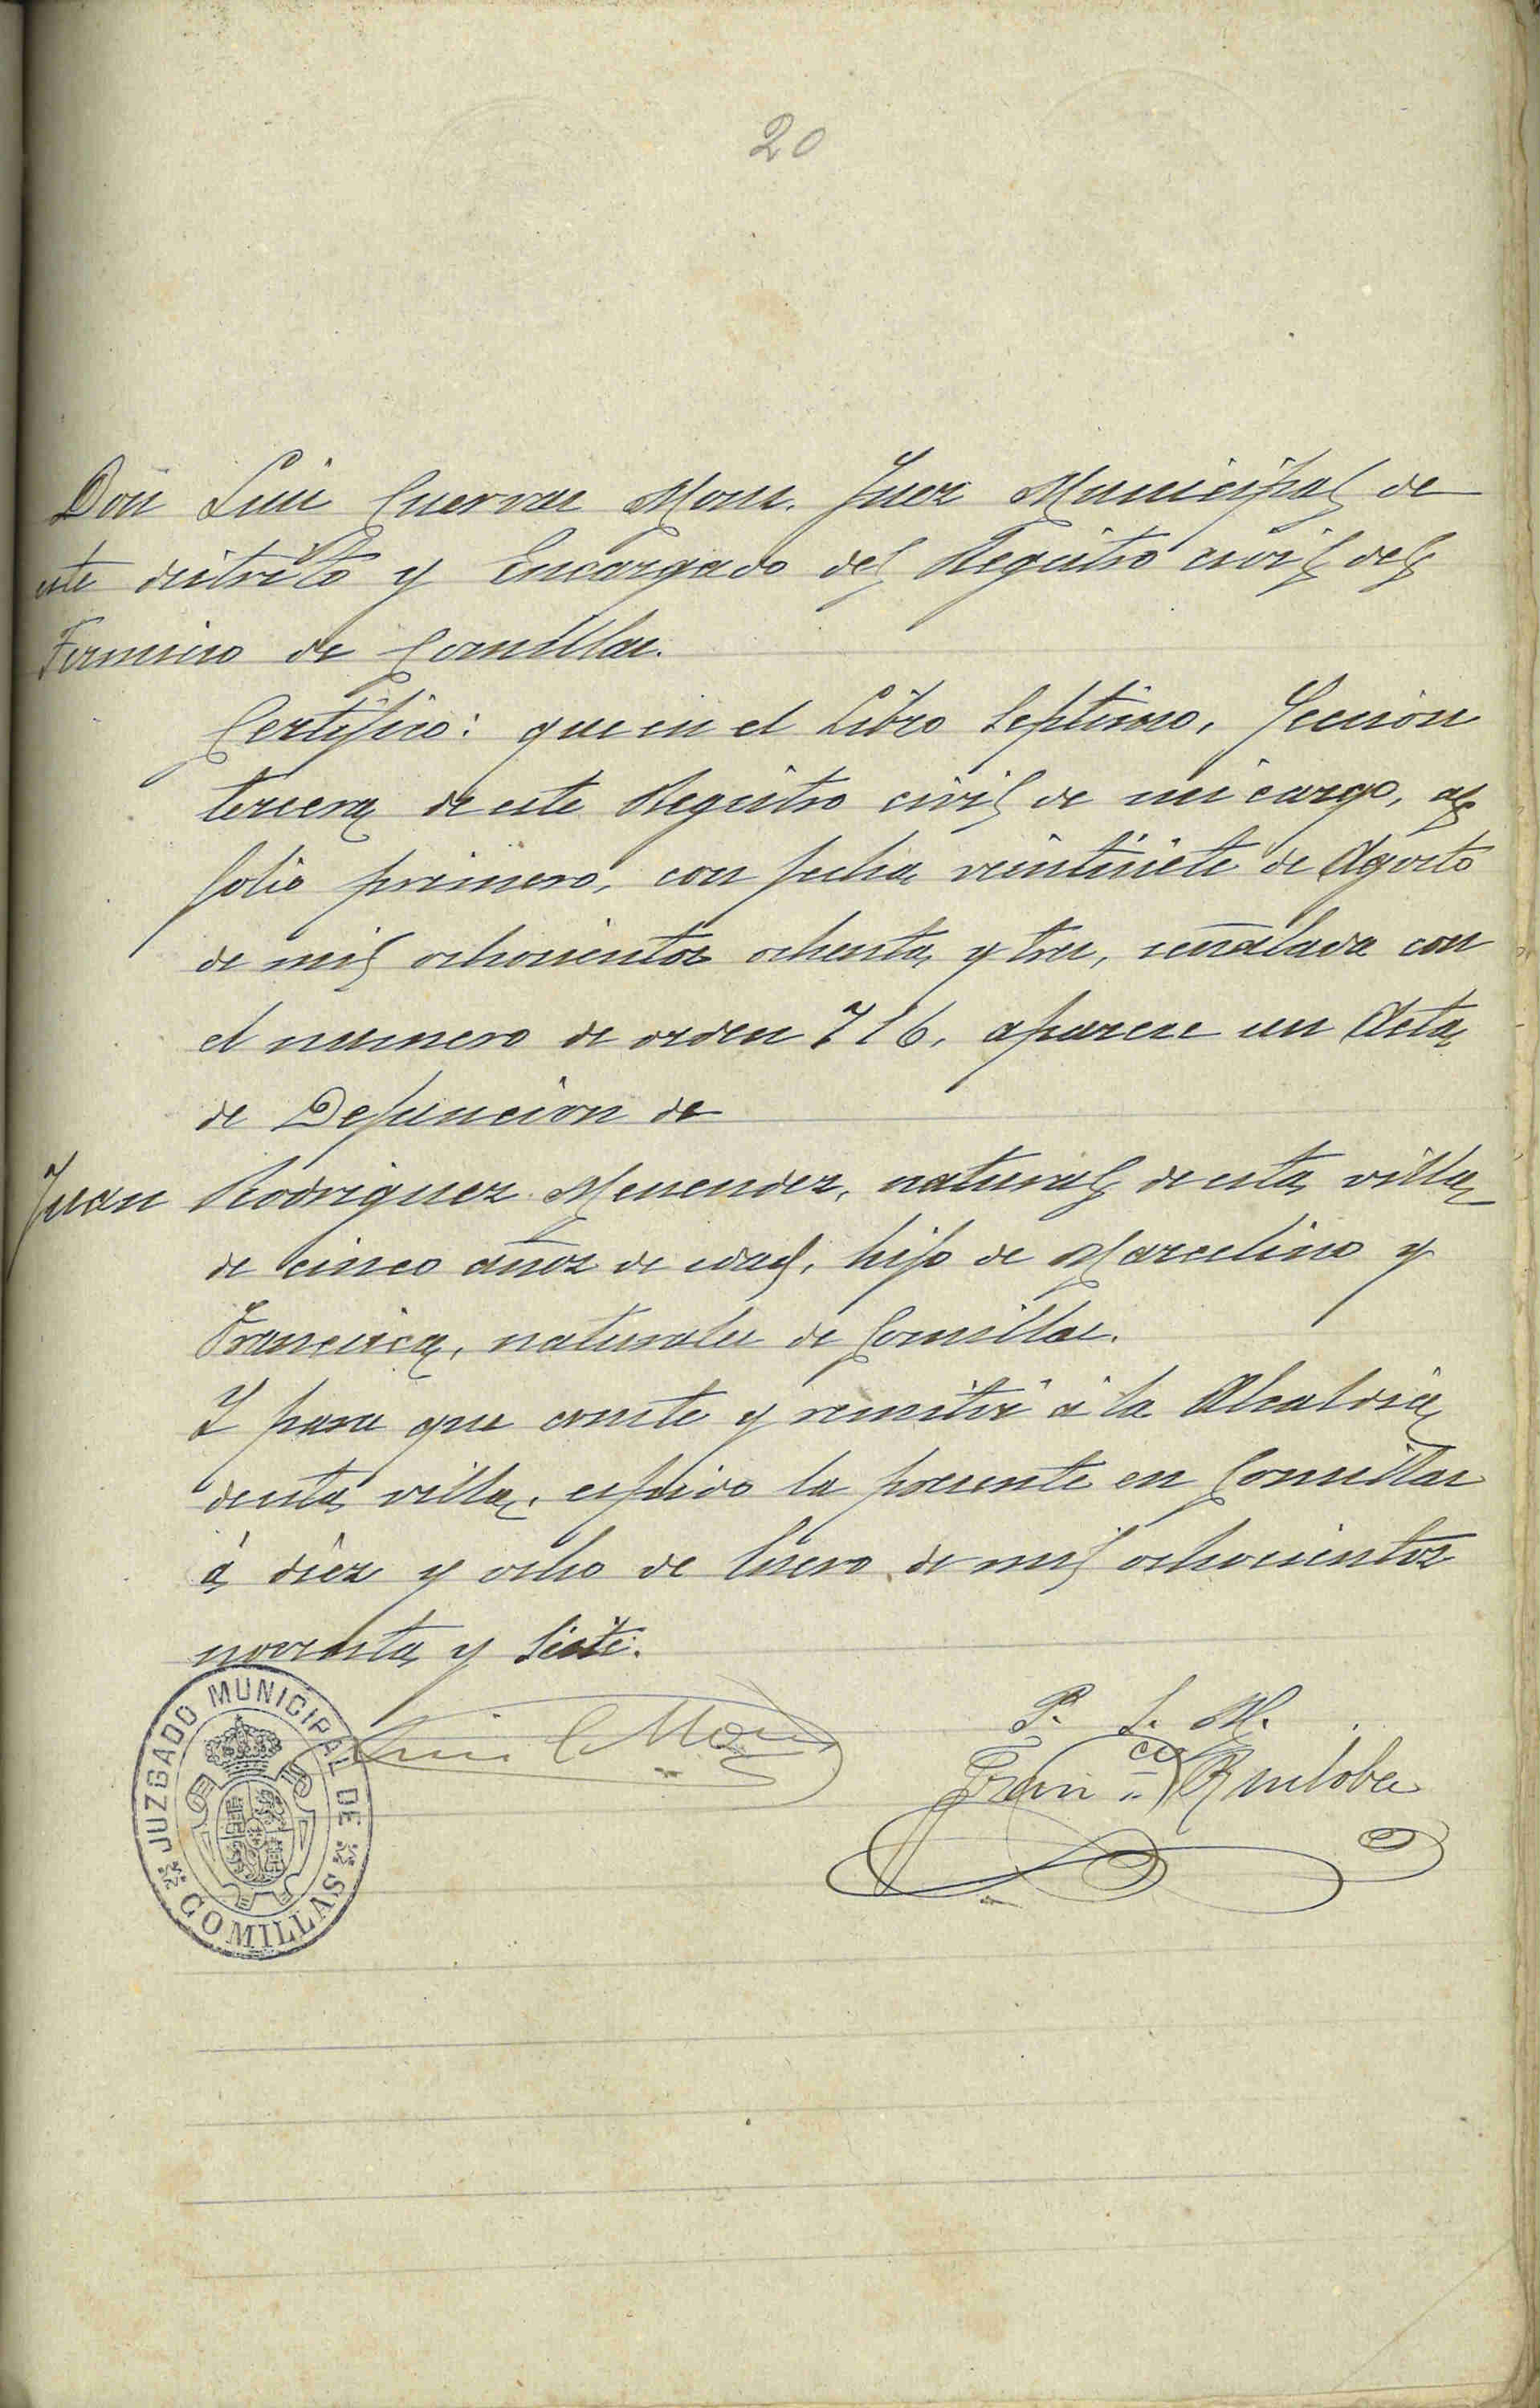 20
Don Luis Cuevas Mons. Juez Municipal de
este distrito y Encargado del Registro civil del
Termino de Comillas.
Certifico: que en el Libro Septimo, Seccion
tercera de este Registro civil de mi cargo, al
folio primero, con fecha veintisiete de Agosto
de mil ochocientos ochenta y tres, señalada con
el numero de orden 716, aparece un Acta
de Defuncion de
Juan Rodriguez Menendez, natural de esta villa
de cinco años de edad, hijo de Marcelino y
Francisca, naturales de Comillas.
Y para que conste y remitir á la Alcaldia
de esta villa, espido la presente en Comillas
á diez y ocho de Enero de mil ochocientos
noventa y Siete.
Luis C Mons
P. S. M.
Fran.co Ruiloba
JUZGADO MUNICIPAL DE COMILLAS